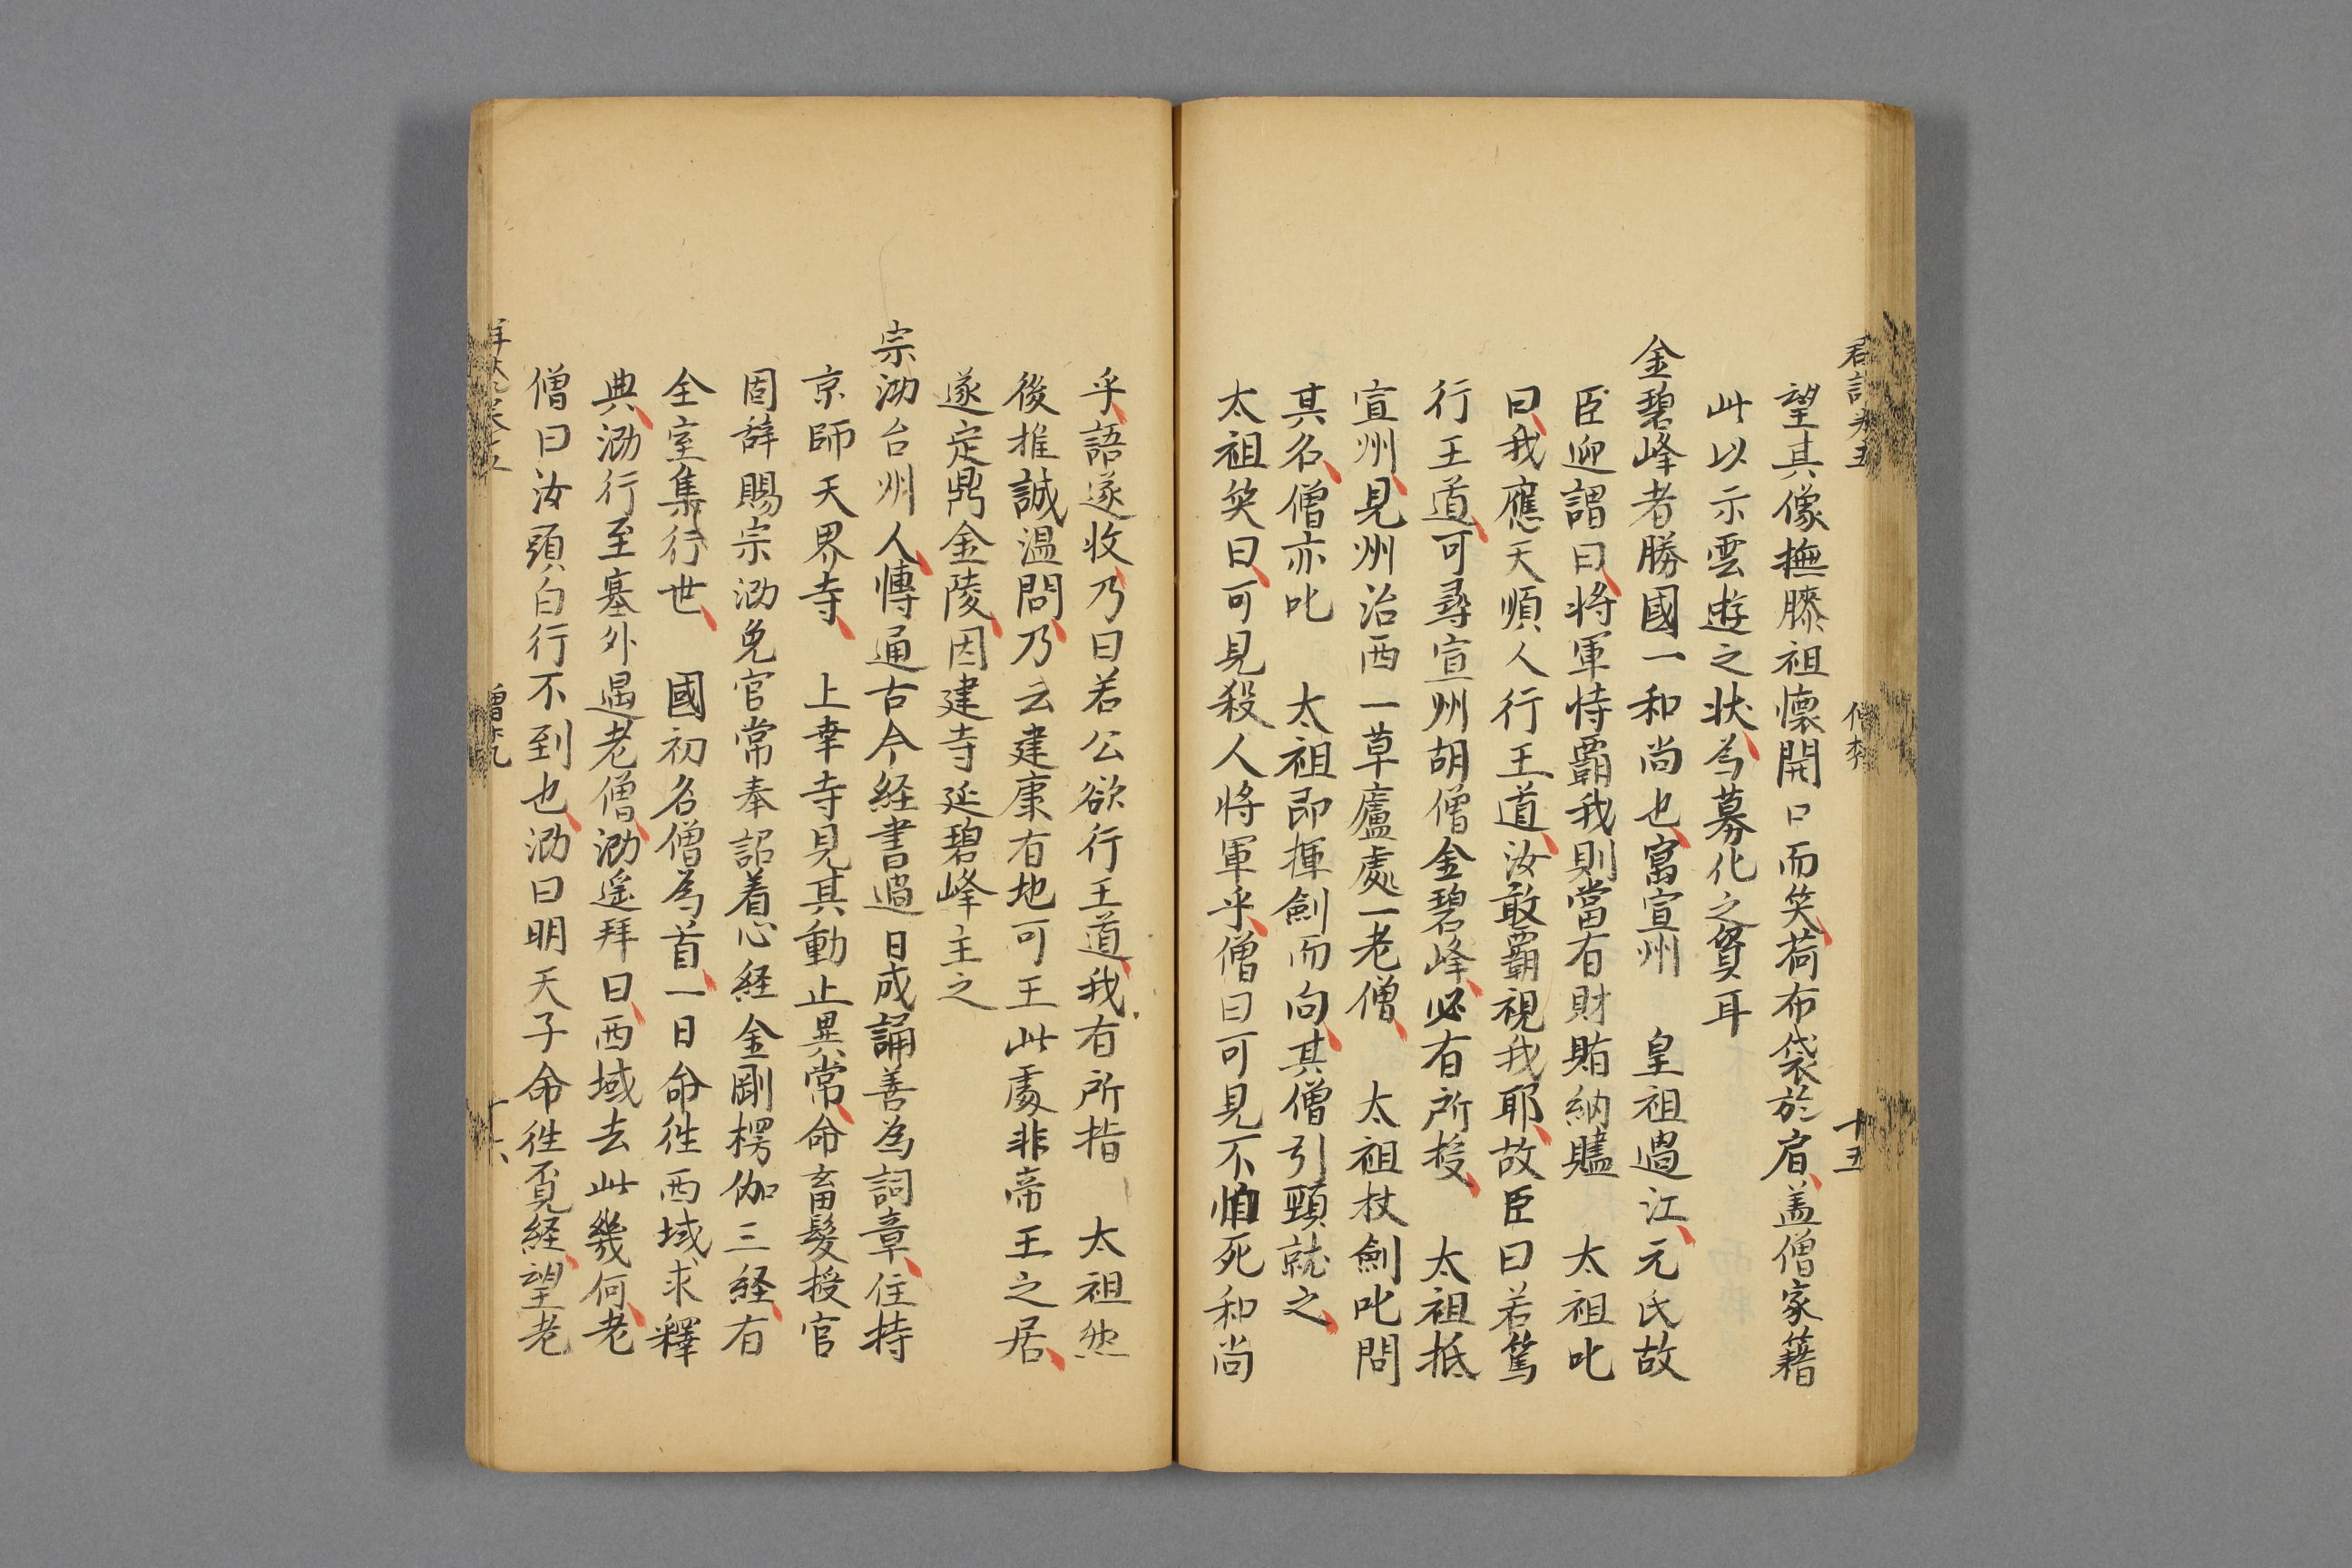 十五
望其像撫膝祖懷開口而笑荷布袋於肩盖僧家籍
此以示雲遊之狀為募化之貲耳
金碧峰者勝國一和尚也寓宣州　皇祖過江元氏故
臣迎謂曰將軍恃覇我則當有財賄納贐　太祖叱
曰我應天順人行王道汝敢覇視我耶故臣曰若篤
行王道可尋宣州胡僧金碧峰必有所授　太祖抵
宣州見州治西一草廬處一老僧　太祖杖劍叱問
其名僧亦叱　太祖即揮劍而向其僧引頸就之
太祖笑曰可見殺人將軍乎僧曰可見不怕死和尚
乎語遂收乃曰若公欲行王道我有所指　太祖然
後推誠溫問乃云建康有地可王此處非帝王之居
遂定鼎金陵因建寺延碧峰主之
宗泐台州人愽通古今経書過日成誦善為詞章住持
京師天界寺　上幸寺見其動止異常命畜髮授官
固辞賜宗泐免官常奉詔着心経金剛楞伽三経有
全室集行世　國初名僧為首一日命徃西域求釋
典泐行至塞外遇老僧泐遥拜曰西域去此幾何老
僧曰汝頭白行不到也泐曰明天子命徃覓経望老